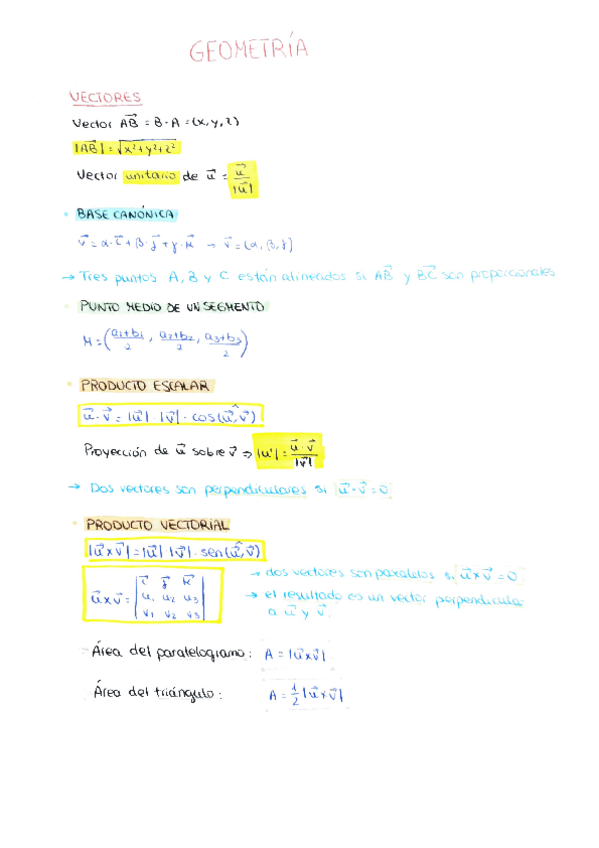 GEOMETRÍA
VECTORES
Vector $\vec{AB}$ = B - A = (x, y, z)
$|\vec{AB}| = \sqrt{x^2+y^2+z^2}$
Vector unitario de $\vec{u} = \frac{\vec{u}}{|\vec{u}|}$
• BASE CANÓNICA
$\vec{v} = \alpha \cdot \vec{i} + \beta \cdot \vec{j} + \gamma \cdot \vec{k} \rightarrow \vec{v} = (\alpha, \beta, \gamma)$
→ Tres puntos A, B y C están alineados si $\vec{AB}$ y $\vec{BC}$ son proporcionales
• PUNTO MEDIO DE UN SEGMENTO
$M = \left(\frac{a_1+b_1}{2}, \frac{a_2+b_2}{2}, \frac{a_3+b_3}{2}\right)$
• PRODUCTO ESCALAR
$\vec{u} \cdot \vec{v} = |\vec{u}| \cdot |\vec{v}| \cdot \cos(\widehat{\vec{u}, \vec{v}})$
Proyección de $\vec{u}$ sobre $\vec{v} \Rightarrow |u'| = \frac{\vec{u} \cdot \vec{v}}{|\vec{v}|}$
→ Dos vectores son perpendiculares si $\vec{u} \cdot \vec{v} = 0$
• PRODUCTO VECTORIAL
$|\vec{u} \times \vec{v}| = |\vec{u}| \cdot |\vec{v}| \cdot \text{sen}(\widehat{\vec{u}, \vec{v}})$
$\vec{u} \times \vec{v} = \begin{vmatrix} \vec{i} & \vec{j} & \vec{k} \\ u_1 & u_2 & u_3 \\ v_1 & v_2 & v_3 \end{vmatrix}$
→ dos vectores son paralelos si $\vec{u} \times \vec{v} = 0$
→ el resultado es un vector perpendicular
a $\vec{u}$ y $\vec{v}$.
Área del paralelogramo: $A = |\vec{u} \times \vec{v}|$
Área del triángulo: $A = \frac{1}{2} |\vec{u} \times \vec{v}|$